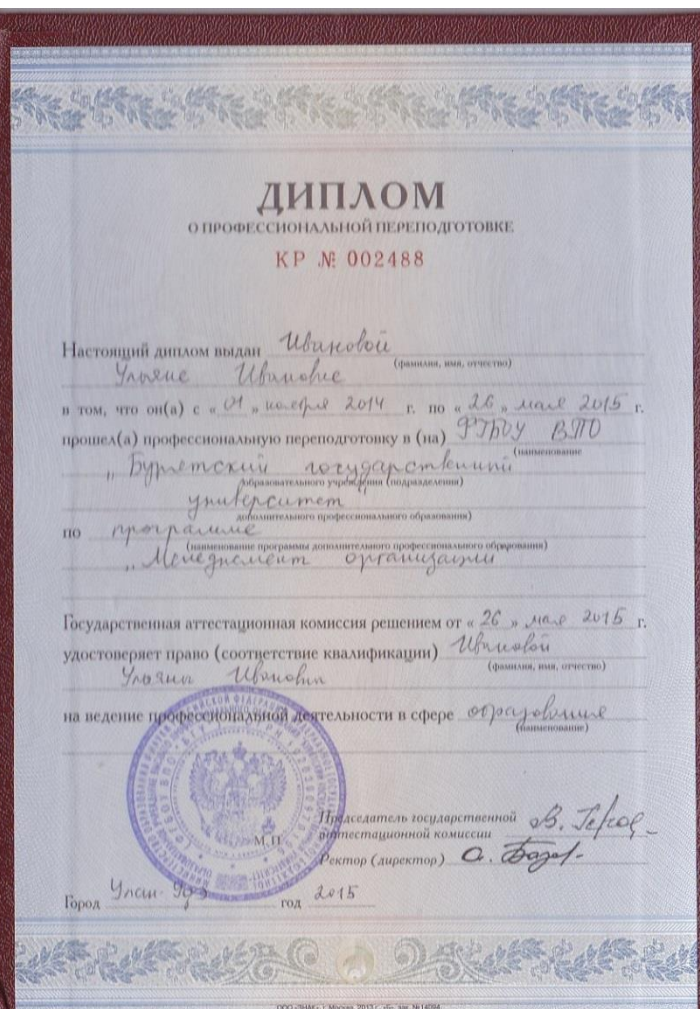 ДИПЛОМ
О ПРОФЕССИОНАЛЬНОЙ ПЕРЕПОДГОТОВКЕ
КР № 002488
Настоящий диплом выдан Ивановой
(фамилия, имя, отчество)
Ульяне Ивановне
в том, что он(а) с «01» ноября 2014 г. по «26» мая 2015 г.
прошел(а) профессиональную переподготовку в (на) ФГБОУ ВПО
(наименование
„Бурятский государственный
образовательного учреждения (подразделения)
университет"
дополнительного профессионального образования)
по программе
(наименование программы дополнительного профессионального образования)
„Менеджмент организации
Государственная аттестационная комиссия решением от «26» мая 2015 г.
удостоверяет право (соответствие квалификации) Ивановой
(фамилия, имя, отчество)
Ульяны Ивановны
на ведение профессиональной деятельности в сфере образования
(наименование)
Председатель государственной
аттестационной комиссии В.
М.П.
Ректор (директор)
Город Улан-Удэ год 2015
ООО «ЗНАК», г. Москва, 2013 г.